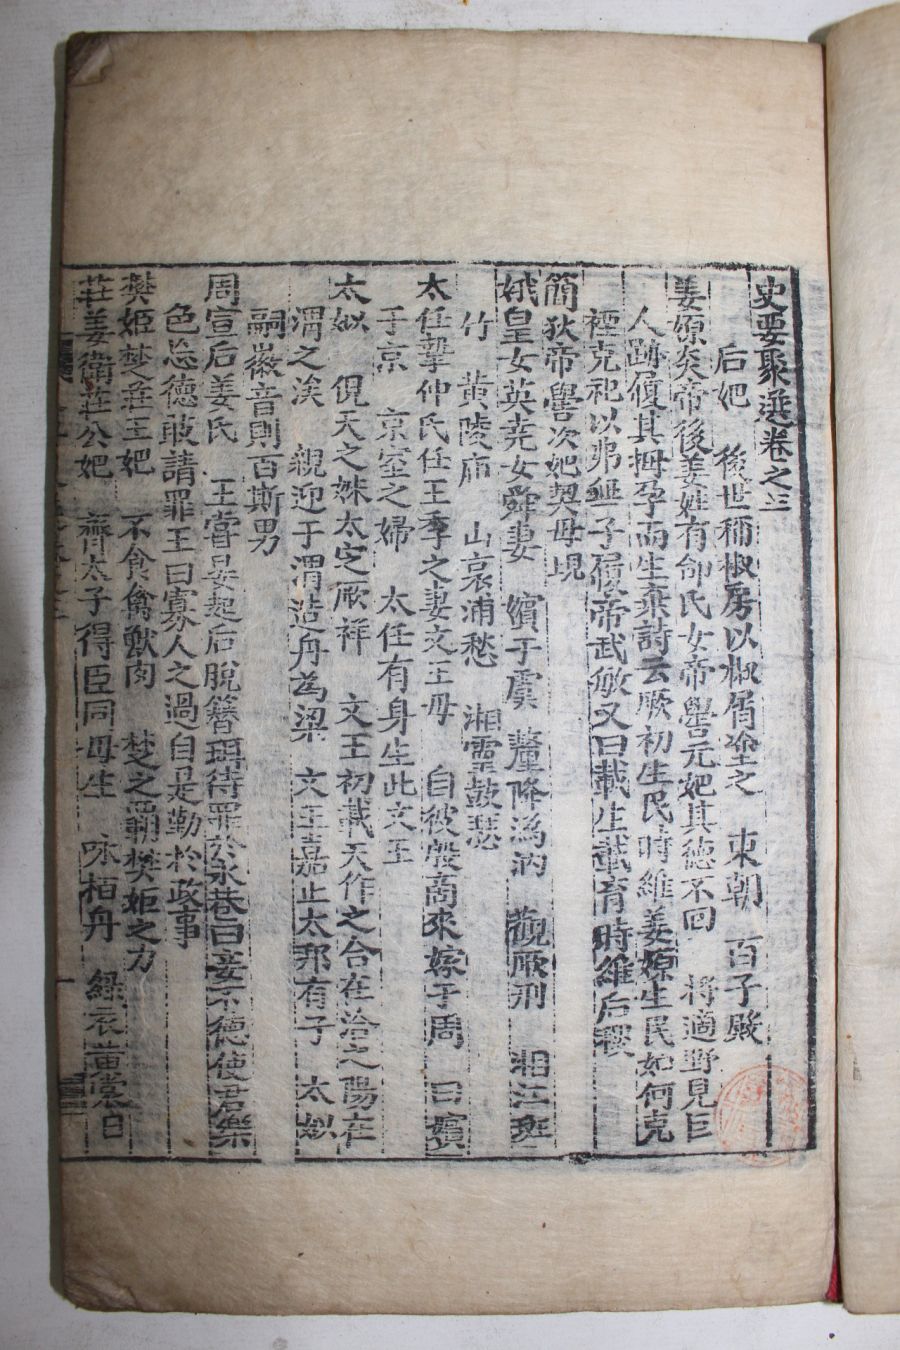 史要聚選卷之三
后妃 後世稱椒房以椒屑塗之 東朝 百子殿
姜嫄炎帝後姜姓有邰氏女帝嚳元妃其德不回 將適野見巨
人跡履其拇孕而生棄詩云厥初生民時維姜嫄生民如何克
禋克祀以弗無子履帝武敏又曰載生載育時維后稷
簡狄帝嚳次妃契母現
娥皇女英堯女舜妻 嬪于虞 釐降溈汭 觀厥刑 湘江班
竹 黃陵庙 山哀浦愁 湘靈鼓瑟
太任摯仲氏任王季之妻文王母 自彼殷商來嫁于周 曰嬪
于京 京室之婦 太任有身生此文王
太姒 俔天之妹太定厥祥 文王初載天作之合在洽之陽在
渭之涘 親迎于渭造舟爲梁 文王嘉止太邦有子 太姒
嗣徽音則百斯男
周宣后姜氏 王嘗晏起后脫簪珥待罪於永巷曰妾不德使君樂
色忘德敢請罪王曰寡人之過自是勤於政事
樊姬楚莊王妃 不食禽獸肉 楚之霸樊姬之力
莊姜衛莊公妃 齊太子得臣同母生 咏栢舟 綠衣黃裳日